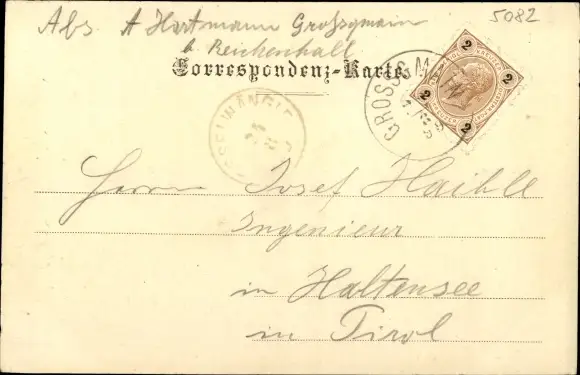 5082
Abs. A Hartmann Grossgmain
b Reichenhall
Correspondenz-Karte.
GROSSGM
2 2 2 2
Herrn Josef Haible
Ingenieur
in Haltensee
in Tirol